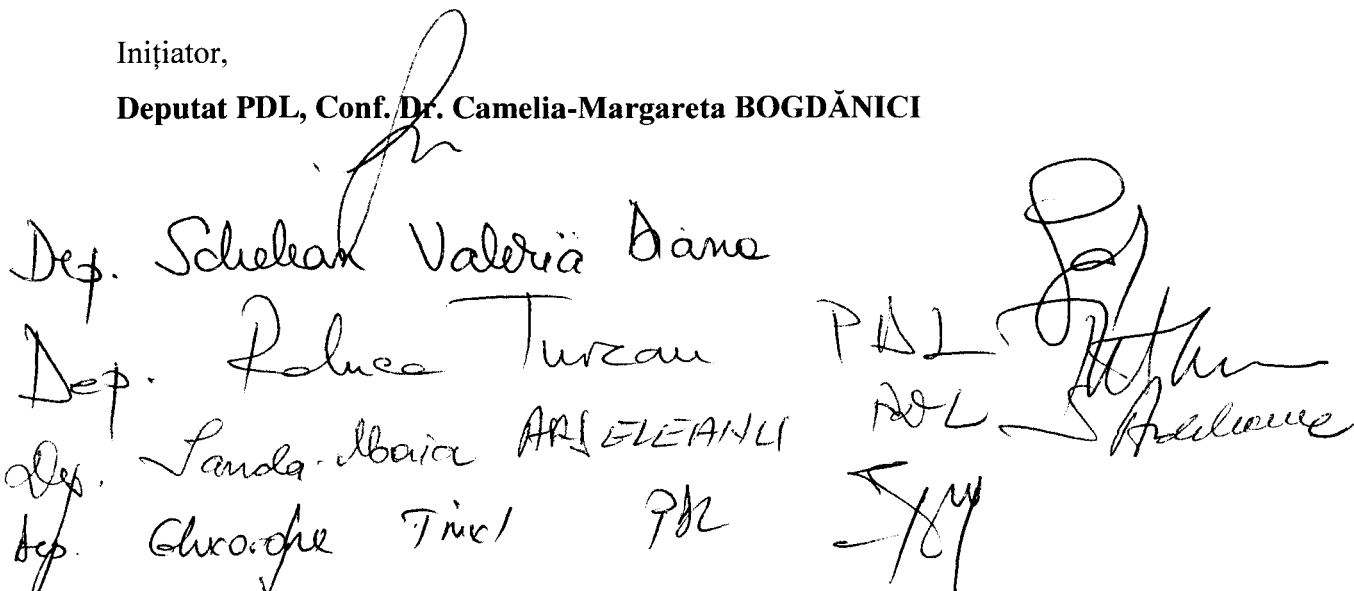 Inițiator,
Deputat PDL, Conf. Dr. Camelia-Margareta BOGDĂNICI
Dep. Schelean Valeria Diana
Dep. Raluca Turcan PDL
Dep. Sanda-Maria ARDELEANU PDL
Dep. Gheorghe PDL